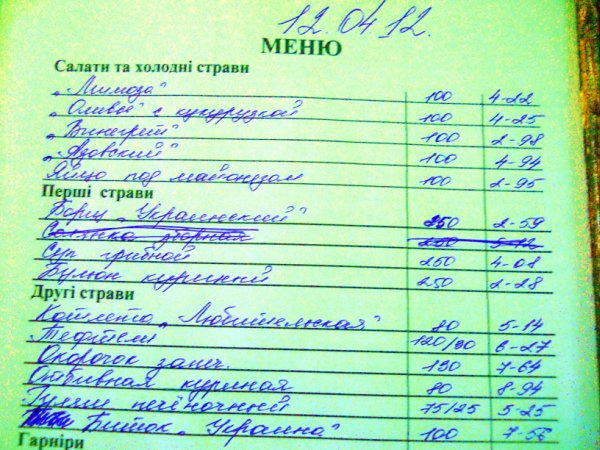 12.04.12.
МЕНЮ
Салати та холодні страви
„Лимоза" 100 4-22
„Оливье" с кукурузкой 100 4-25
„Винегрет" 100 2-98
„Азовский" 100 4-94
Яйцо под майонезом 100 2-95
Перші страви
Борщ „Украинский" 250 2-59
Солянка сборная 250
Суп грибной 250 4-08
Бульон куриный 250 2-28
Другі страви
Котлета „Любительская" 80 5-14
Тефтели 120/30 6-27
Окорочок запеч. 130 7-64
Отбивная куриная 80 8-94
Гуляш печёночный 75/25 5-25
Биток „Украина" 100 7-56
Гарніри